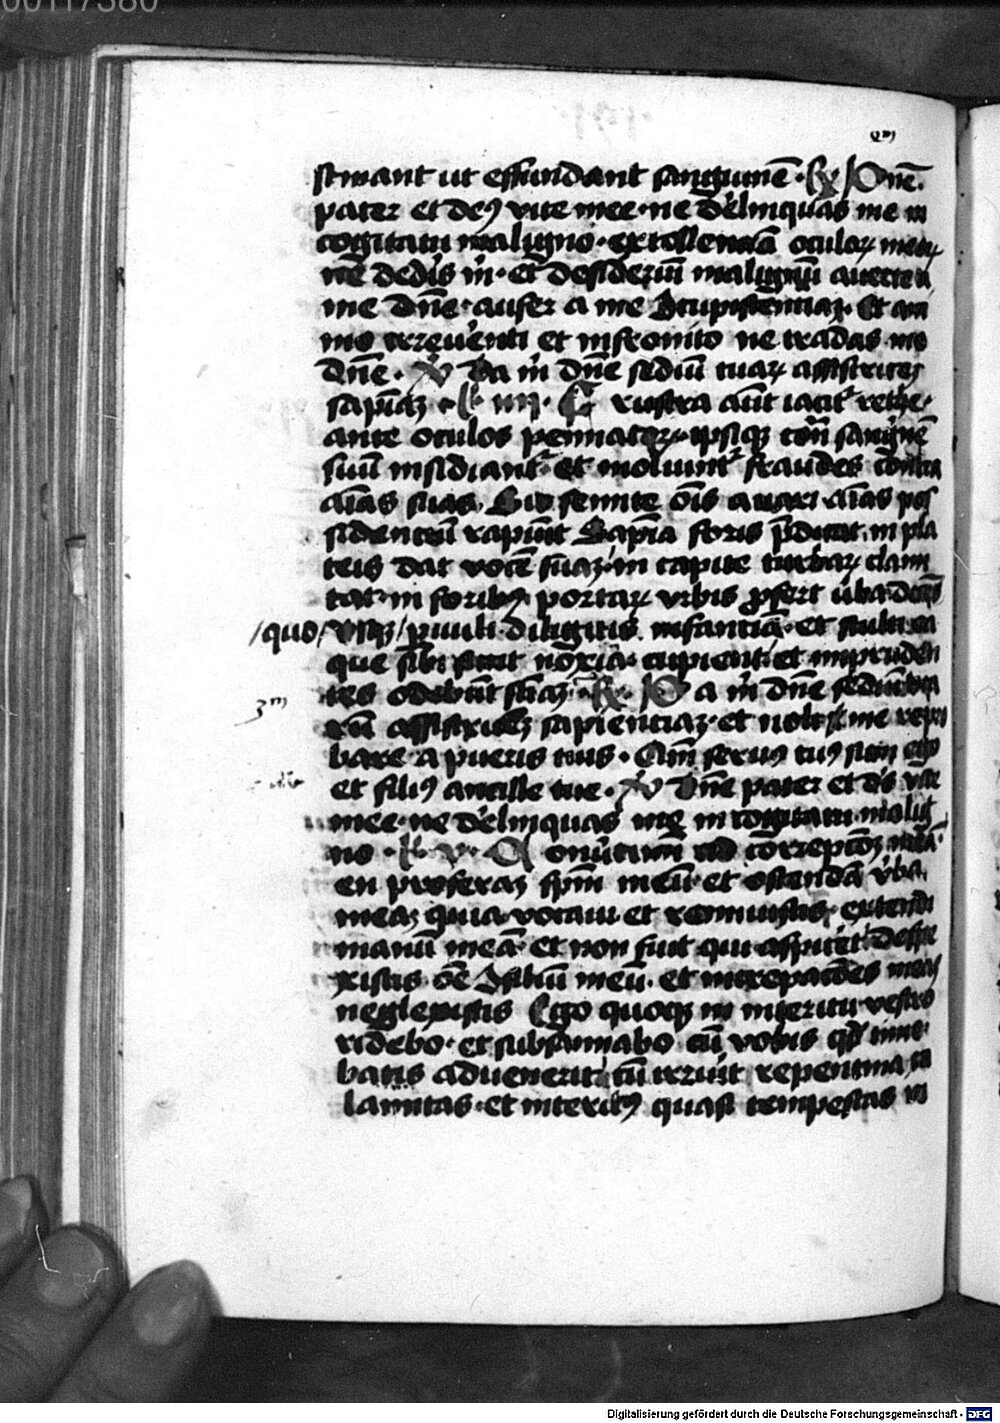 00117380
2m
stinant ut effundant sanguinē · R̸ Dn̄e
pater et deꝰ vite mee · ne delinquas me in
cogitatu maligno · extollentiā oculoꝝ meoꝝ
nē dedis m̄ · et desideriū malignū auerte a
me dn̄e · aufer a me ꝯcupistentiaꝫ · Et ani
mo irreuenti et infronito ne tradas me
dn̄e · V̸ Da m̄ dn̄e sediū tuaꝝ assistricē
sapiaꝫ · L iiij · Frustra aūt iacit᷑ rethe
ante oculos pennatoꝝ · ipsiqꝫ con̄ sanguinē
suū insidiant᷑ · et moliunt᷑ fraudes contra
aīas suas · Sic semite oīs auari aīas pos
sidentiū rapiūt Sapīa foris p̄dicat in pla
teis dat vocē suaꝫ · in capite turbaꝝ clami
tat · in foribꝰ portaꝝ vrbis ꝓfert v̄ba dicēs
/quo/ Vsqꝫ / puuli diligitis infantiā · et stulti ea
que sibi sunt noxia cupient · et impruden
tes odebūt sciaꝫ · R̸ Da m̄ dn̄e sediū tua
3m
rū assistriceꝫ sapientiaꝫ · et noli me repro
bare a pueris tuis · Qm̄ seruꝰ tuꝰ sum ego
et filiꝰ ancille tue · V̸ Dn̄e pater et ds̄ vite
mee · ne delinquas me in cogitatu malig
no · L · v · Conūtimī ad correptōꝫ meā
en proferaꝫ spm̄ meū · et ostendā v̄ba
mea · quia vocaui et rennuistis · extendi
manū meā · et non fuit qui aspiceret · Despe
xistis oē ꝯsiliū meū · et increpatōes meas
neglexistis Ego quoqꝫ in interitu vestro
ridebo · et subsannabo cū vobis qd̄ time
batis aduenerit · cū irruīt repentina ca
lamitas · et interitꝰ quasi tempestas in
Digitalisierung gefördert durch die Deutsche Forschungsgemeinschaft - DFG